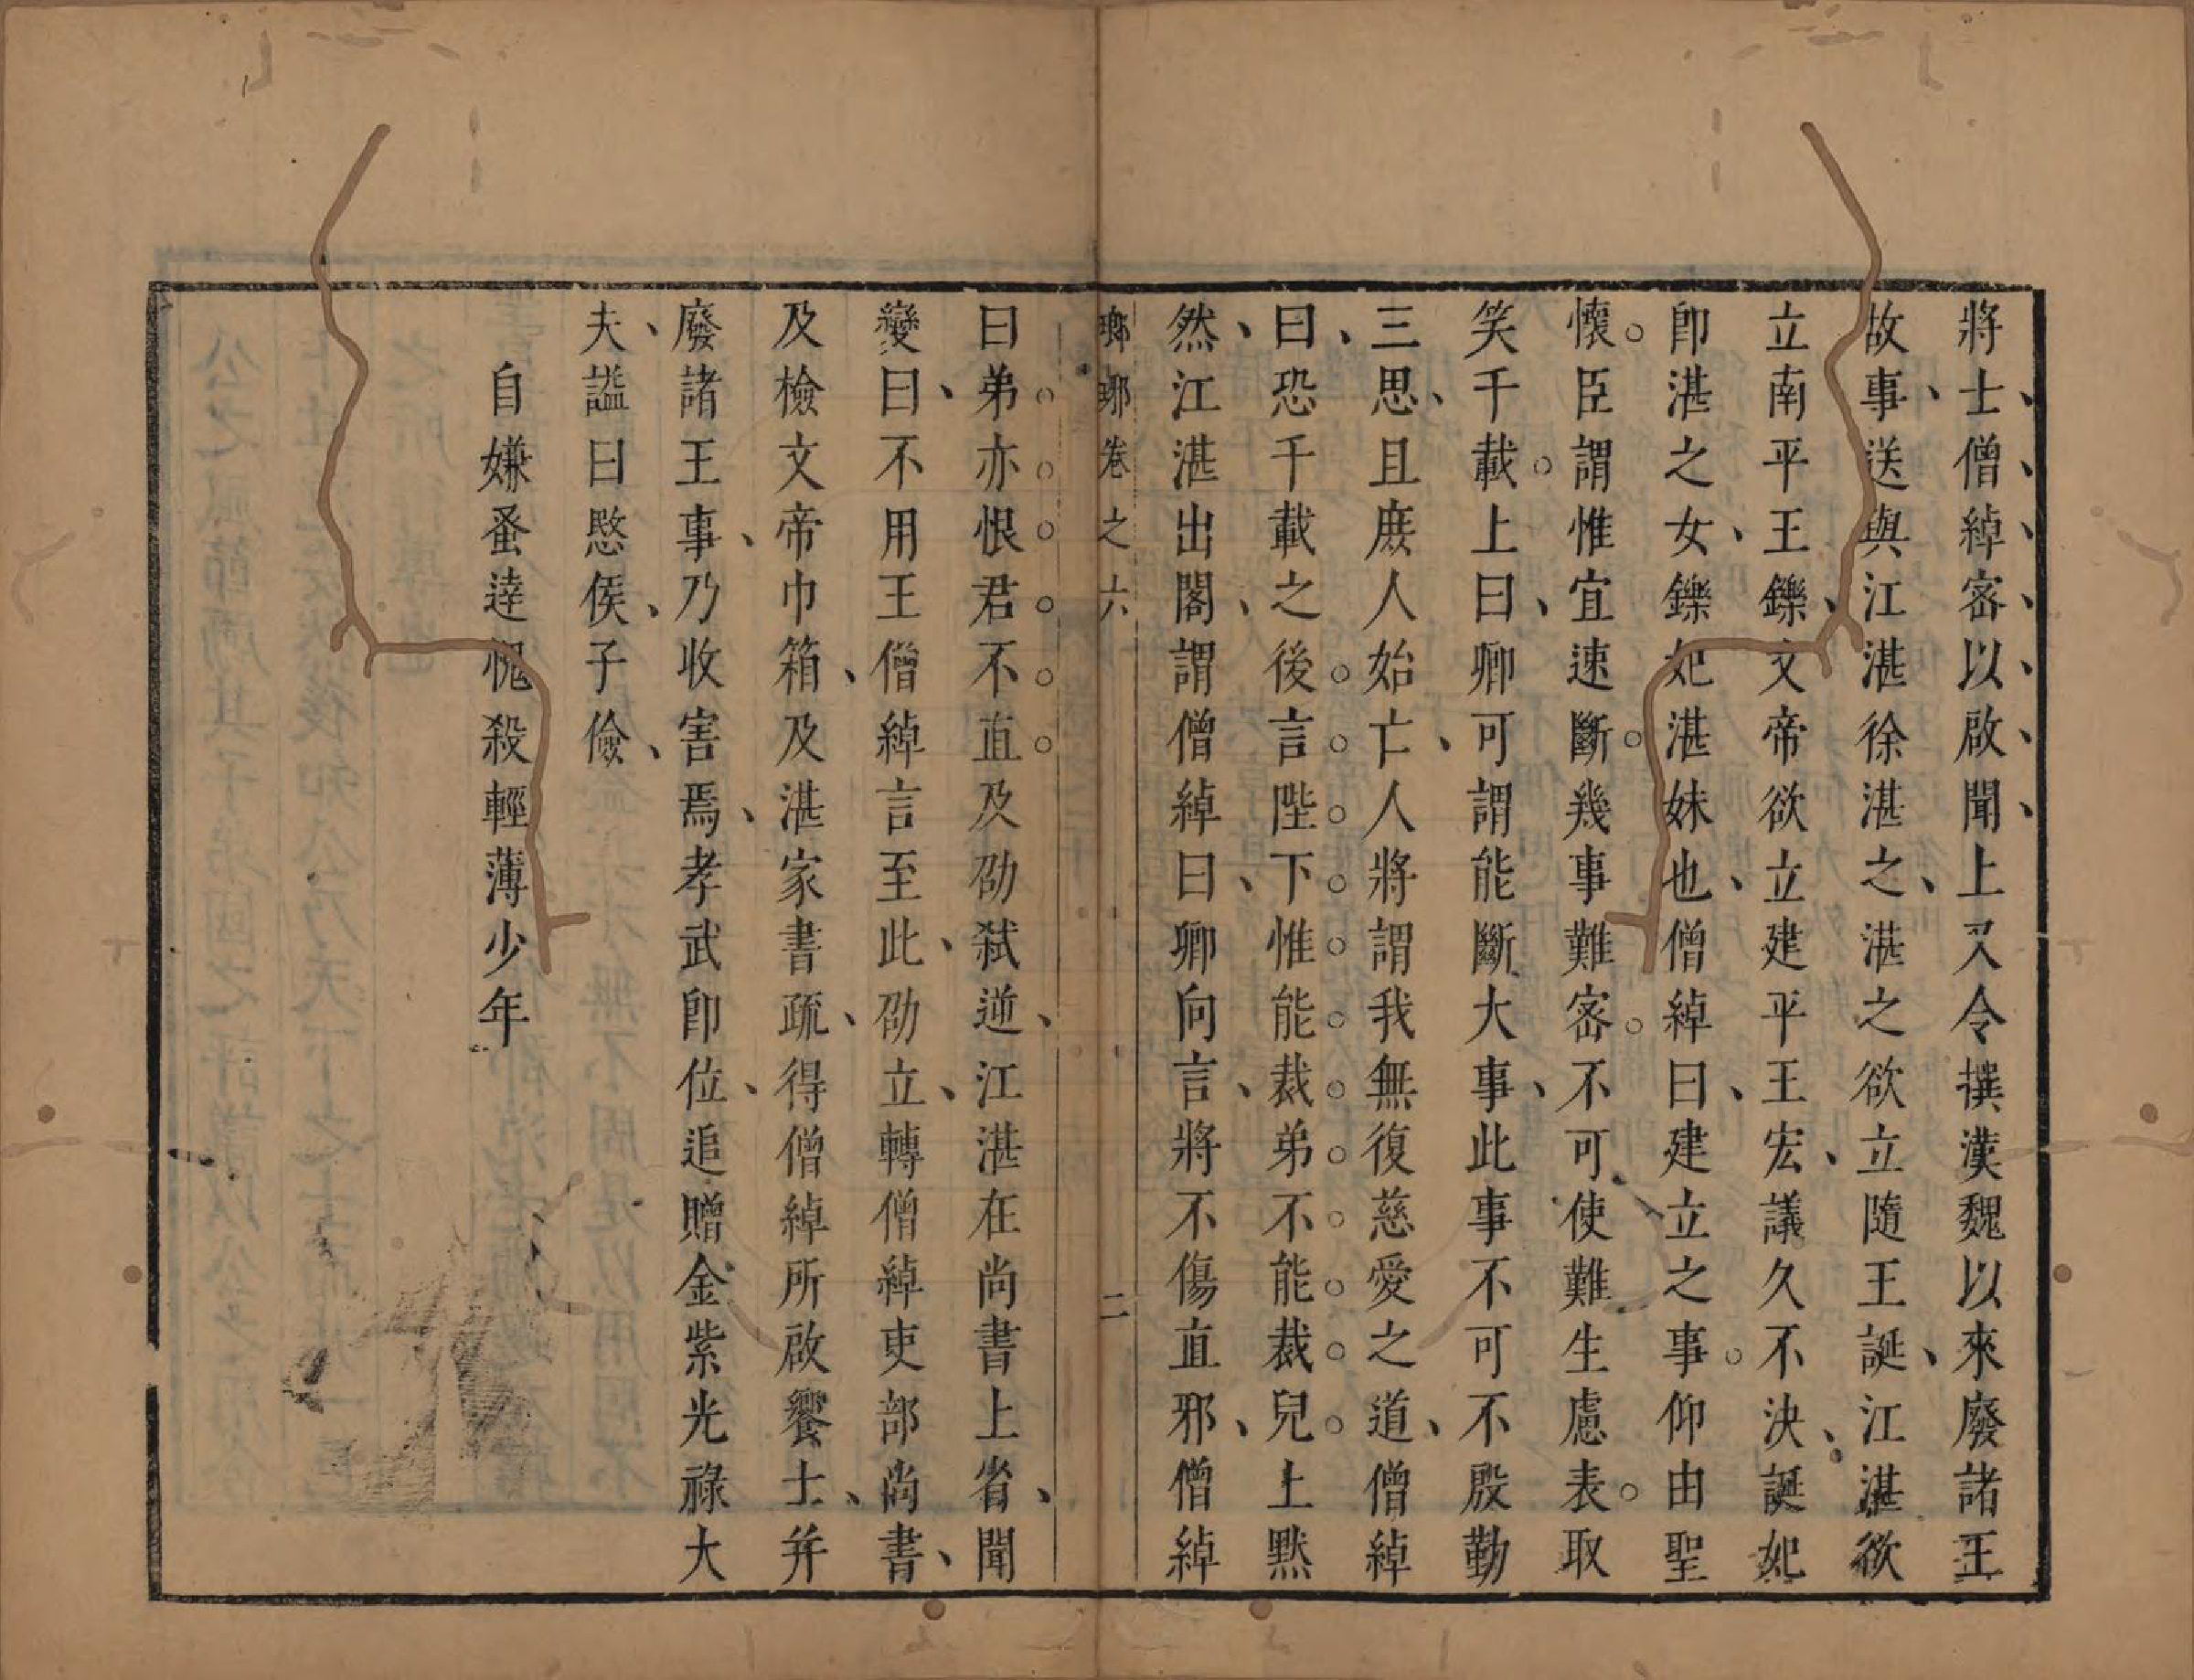 將士、僧、綽、密、以、啟、聞、上又令撰漢魏以來廢諸王
故事、送與江湛徐湛之、湛之欲立隨王誕、江湛欲
立南平王鑠、文帝欲立建平王宏、議久不決、誕妃
卽湛之女、鑠妃湛妹也、僧綽曰、建立之事。仰由聖
懷。臣謂惟宜速斷。幾事難密。不可使難生慮表。取
笑千載。上曰、卿可謂能斷大事、此事不可不殷勤
三思、且庶人始亡、人將謂我無復慈愛之道、僧綽
曰、恐千載之後。言。陛。下。惟。能。裁。弟。不。能。裁。兒。上默
然、江湛出閣、謂僧綽曰、卿向言、將不傷直邪、僧綽
瑯琊卷之六 二
曰弟。亦。恨。君。不。直。及劭弑逆、江湛在尚書上省、聞
變曰、不用王僧綽言至此、劭立、轉僧綽吏部尚書、
及檢文帝巾箱、及湛家書疏、得僧綽所啟饗士、幷
廢諸王事、乃收害焉、孝武卽位、追贈金紫光祿大
夫、謚曰愍侯、子儉、
自嫌蚤達愧殺輕薄少年